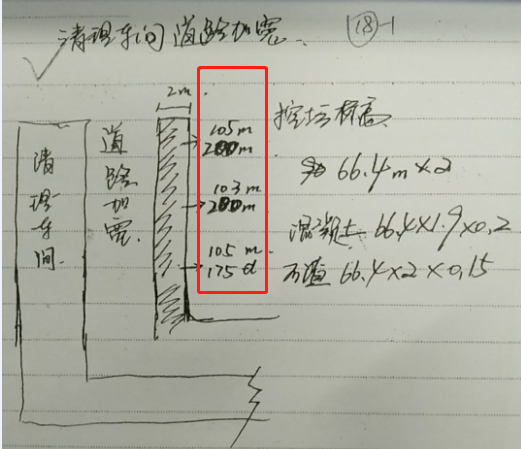 清理车间道路加宽.
18-1
2m.
清理车间.
道路加宽.
105m
200m
103m
200m
105m.
175
挖坛标高
66.4m×2
混凝土 66.4×1.9×0.2
石渣 66.4×2×0.15